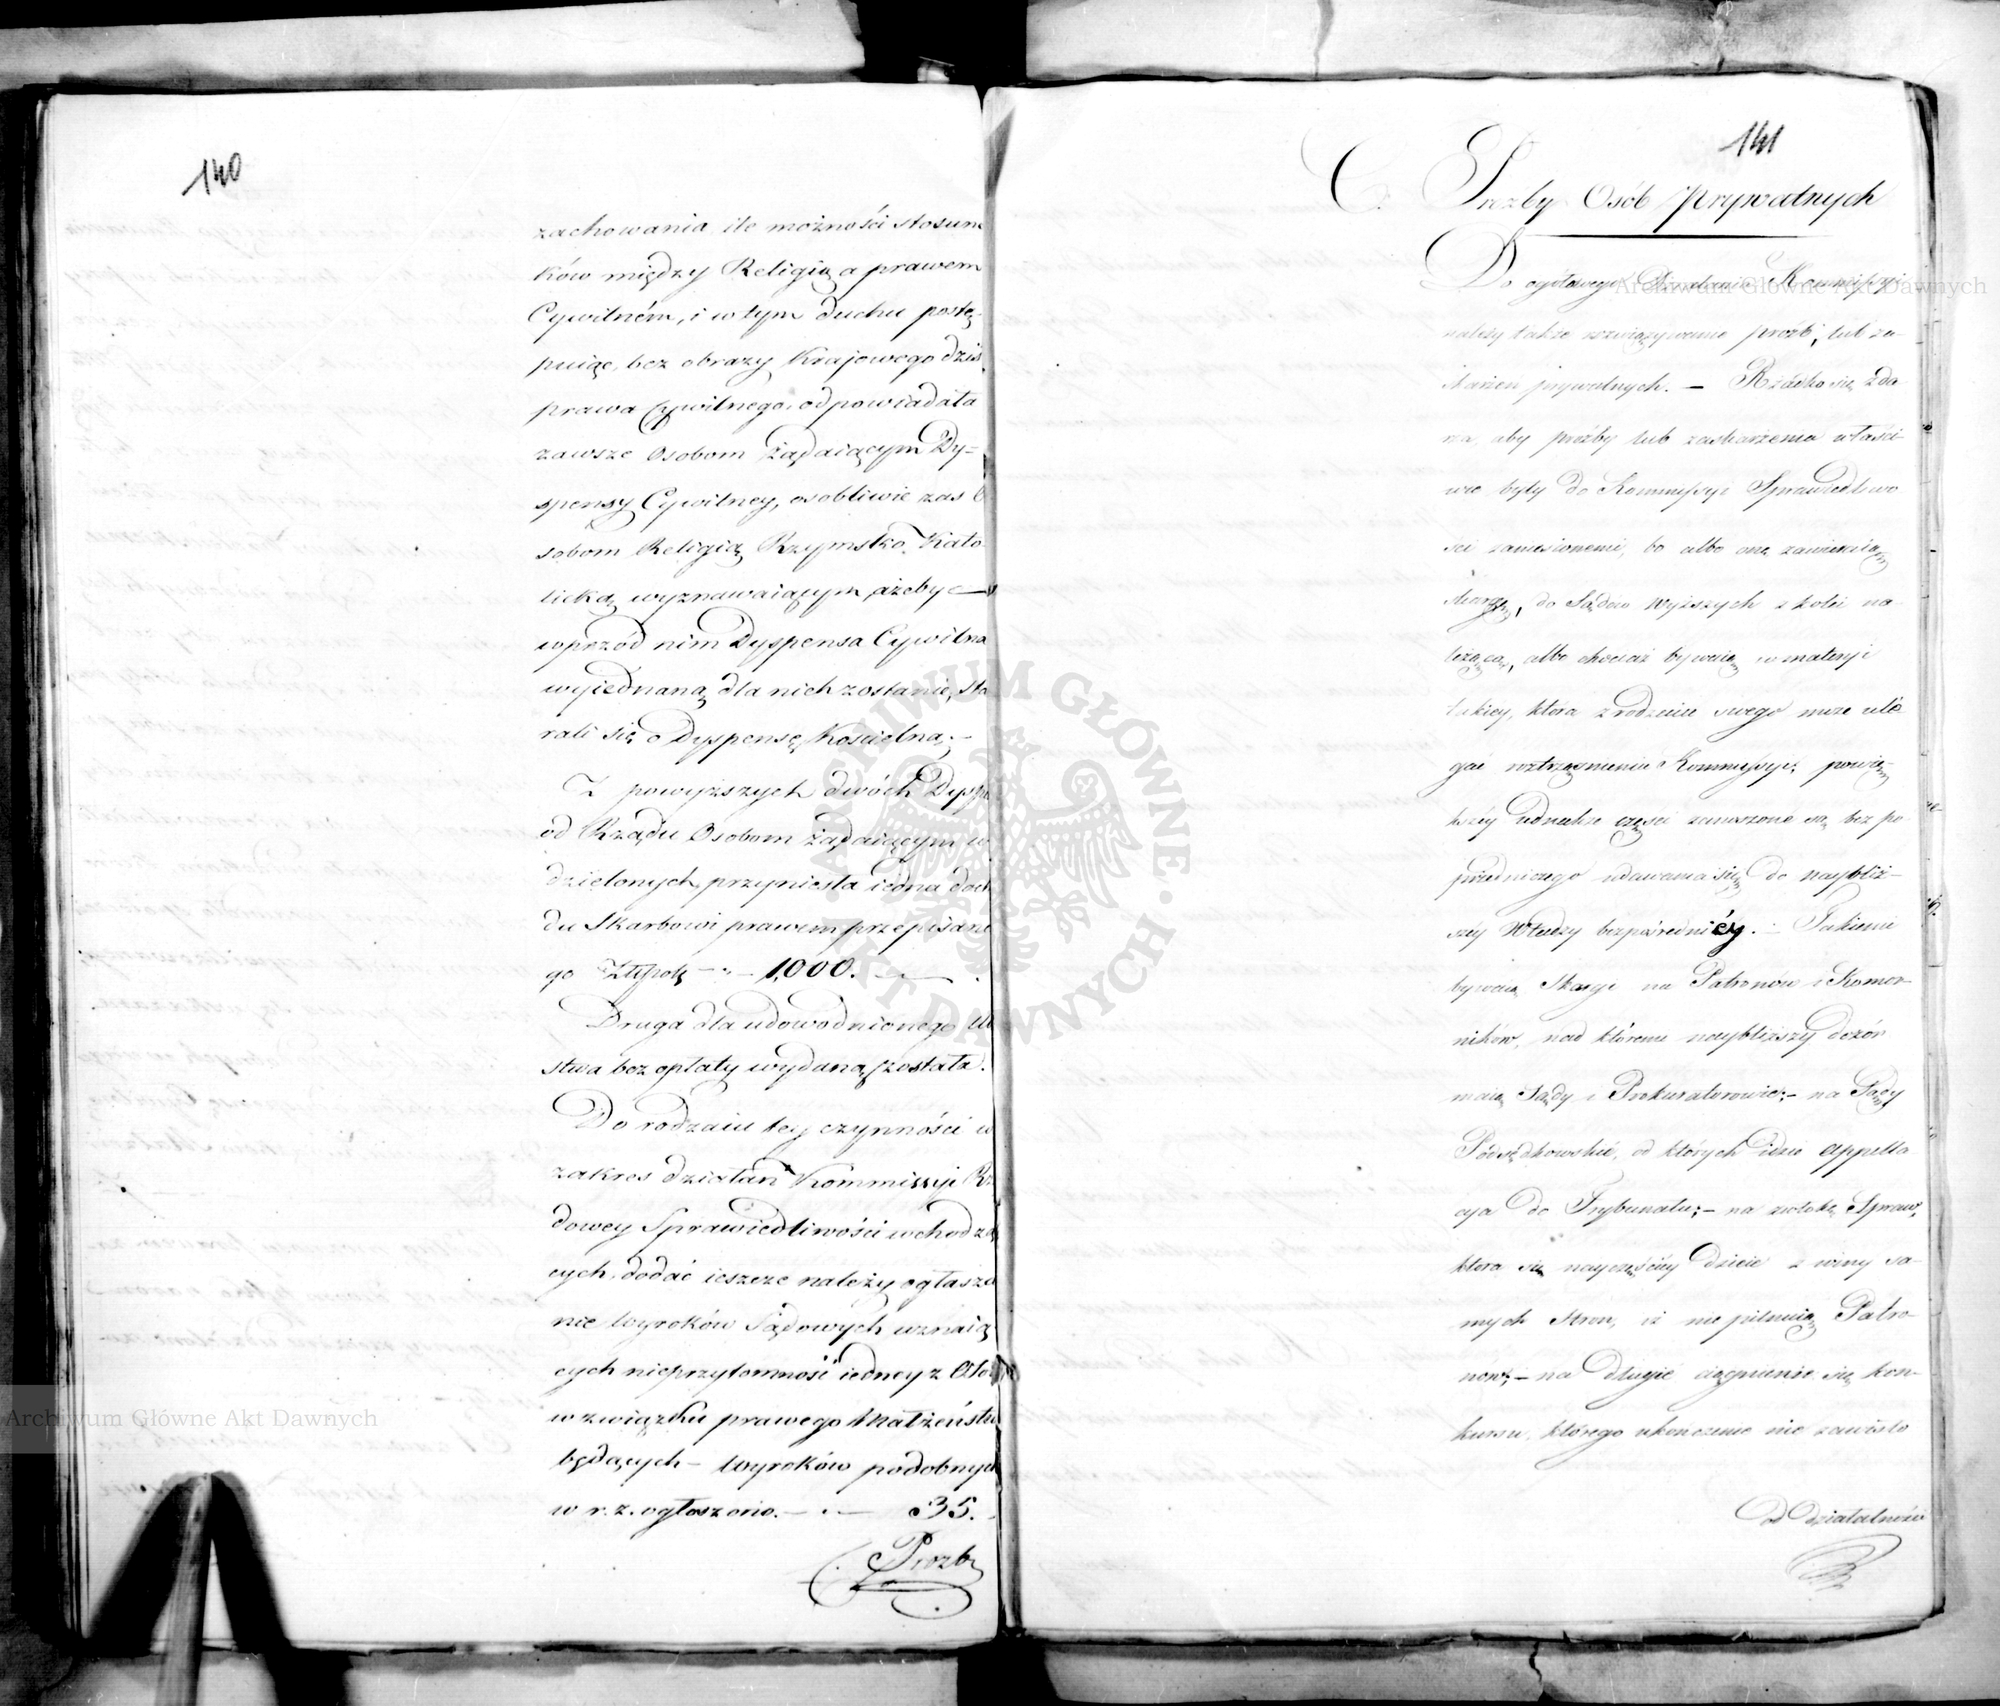 140
zachowania ile możności stosun
ków między Religią a prawem
Cywilném, i w tym duchu postę-
puiąc, bez obrazy Krajowego dziś
prawa Cywilnego, odpowiadała
zawsze Osobom żądaiącym Dy=
spensy Cywilney, osobliwie zas O
sobom Religią Rzymsko Kato
licką wyznawaiącym, ażeby
wprzód nim Dyspensa Cywilna
wyiednaną dla nich zostanie, sta
rali się o Dyspensę Kościelną.-
Z powyższych dwóch Dyspe
od Rządu Osobom żądaiącym u
dzielonych, przyniosła iedna doch
du Skarbowi prawem przepisane
go Złłpol. 1,000.
Druga dla udowodnionego Ub
stwa bez opłaty wydaną została.
Do rodzaiu tey czynności w
zakres działań Kommissyi Rz
dowey Sprawiedliwości wchodzą
cych, dodać ieszcze należy ogłasza
nie Wyroków Sądowych uznaią
cych nieprzytomność iedney z Osób
w związku prawego Małżeństw
będących - Wyroków podobnych
w r. z. ogłoszono. - 35.
C. Prozb
141
C. Prozby Osób Prywatnych
Do ogólnego Działania Kommissyi
należy także rozwiązywanie proźb, lub za
skarżeń prywatnych. - Rzadko się zda
rza, aby proźby lub zaskarżenia właści
wie były do Kommissyi Sprawiedliwo
ści zaniesionemi, bo albo one zawieraią
skargę, do Sądów Wyższych z kolei na
leżącą, albo chociaż bywaią w materyi
takiey, która z rodzaiu swego może ule
gać roztrząsaniu Kommissyi, powię-
kszey iednakże części zanoszone są bez po
przedniczego udawania się do naybliż-
széy Władzy bezpośredniéy. - Takiemi
bywaią Skargi na Patronów i Komor-
ników, nad któremi naybliższy dozór
maią Sądy i Prokuratorowie; - na Sądy
Podsędkowskie, od których idzie appella
cya do Trybunału; - na zwłokę Spraw,
która się nayczęściey dzieie z winy sa-
mych Stron, iż nie pilnuią Patro-
nów; - na długie ciągnienie się kon-
kursu, którego ukończenie nie zawisło
od działalności
Archiwum Główne Akt Dawnych
Archiwum Główne Akt Dawnych
ARCHIWUM GŁÓWNE AKT DAWNYCH